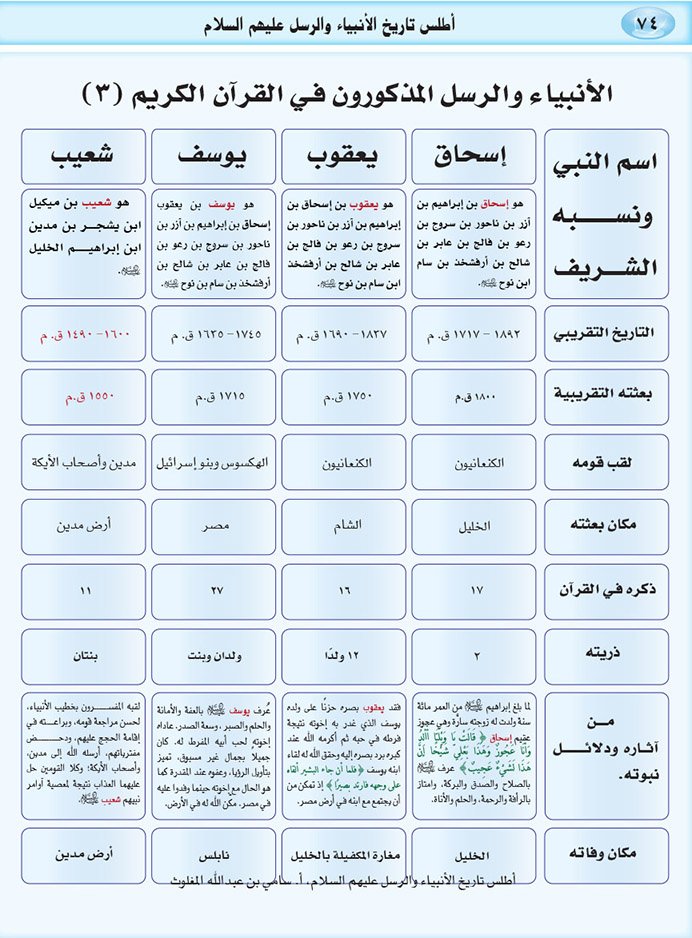 ٧٤
أطلس تاريخ الأنبياء والرسل عليهم السلام
الأنبياء والرسل المذكورون في القرآن الكريم (٣)
اسم النبي
ونسبه
الشريف
إسحاق
يعقوب
يوسف
شعيب
هو إسحاق بن إبراهيم بن
آزر بن ناحور بن سروج بن
رعو بن فالج بن عابر بن
شالح بن أرفشخذ بن سام
ابن نوح ﷺ.
هو يعقوب بن إسحاق بن
إبراهيم بن آزر بن ناحور بن
سروج بن رعو بن فالج بن
عابر بن شالح بن أرفشخذ
ابن سام بن نوح ﷺ.
هو يوسف بن يعقوب بن
إسحاق بن إبراهيم بن آزر بن
ناحور بن سروج بن رعو بن
فالج بن عابر بن شالح بن
أرفشخذ بن سام بن نوح ﷺ.
هو شعيب بن ميكيل
ابن يشجر بن مدين
ابن إبراهيم الخليل
ﷺ.
التاريخ التقريبي
١٨٩٢ - ١٧١٧ ق. م
١٨٣٧- ١٦٩٠ ق. م
١٧٤٥- ١٦٣٥ ق. م
١٦٠٠- ١٤٩٠ ق. م
بعثته التقريبية
١٨٠٠ ق.م
١٧٥٠ ق.م
١٧١٥ ق.م
١٥٥٠ ق.م
لقب قومه
الكنعانيون
الكنعانيون
الهكسوس وبنو إسرائيل
مدين وأصحاب الأيكة
مكان بعثته
الخليل
الشام
مصر
أرض مدين
ذكره في القرآن
١٧
١٦
٢٧
١١
ذريته
٢
١٢ ولدًا
ولدان وبنت
بنتان
من
آثاره ودلائل
نبوته.
لما بلغ إبراهيم ﷺ من العمر مائة
سنة ولدت له زوجته سارة وهي عجوز
عقيم إسحاق ﴿ قَالَتْ يَا وَيْلَتَىٰ أَأَلِدُ
وَأَنَا عَجُوزٌ وَهَٰذَا بَعْلِي شَيْخًا إِنَّ
هَٰذَا لَشَيْءٌ عَجِيبٌ ﴾ عرف ﷺ
بالصلاح والصدق والبركة، وامتاز
بالرأفة والرحمة، والحلم والأناة.
فقد يعقوب بصره حزنًا على ولده
يوسف الذي غدر به إخوته نتيجة
فرطه في حبه ثم أكرمه الله عند
كبره برد بصره إليه وحقق الله له لقاء
ابنه يوسف ﴿فلما أن جاء البشير ألقاه
على وجهه فارتد بصيرًا﴾ إذ تمكن من
أن يجتمع مع ابنه في أرض مصر.
عُرف يوسف ﷺ بالعفة والأمانة
والحلم والصبر، وسعة الصدر. عاداه
إخوته لحب أبيه المفرط له. كان
جميلاً بجمال غير مسبوق، تميز
بتأويل الرؤيا، وعفوه عند المقدرة كما
هو الحال مع إخوته حينما وفدوا عليه
في مصر. مكن الله له في الأرض.
لقبه المفسرون بخطيب الأنبياء،
لحسن مراجعة قومه، وبراعته في
إقامة الحجج عليهم، ودحض
مفترياتهم، أرسله الله إلى مدين،
وأصحاب الأيكة؛ وكلا القومين حل
عليهما العذاب نتيجة لمعصية أوامر
نبيهم شعيب ﷺ.
مكان وفاته
الخليل
مغارة المكفيلة بالخليل
نابلس
أرض مدين
أطلس تاريخ الأنبياء والرسل عليهم السلام، أ. سامي بن عبدالله المغلوث